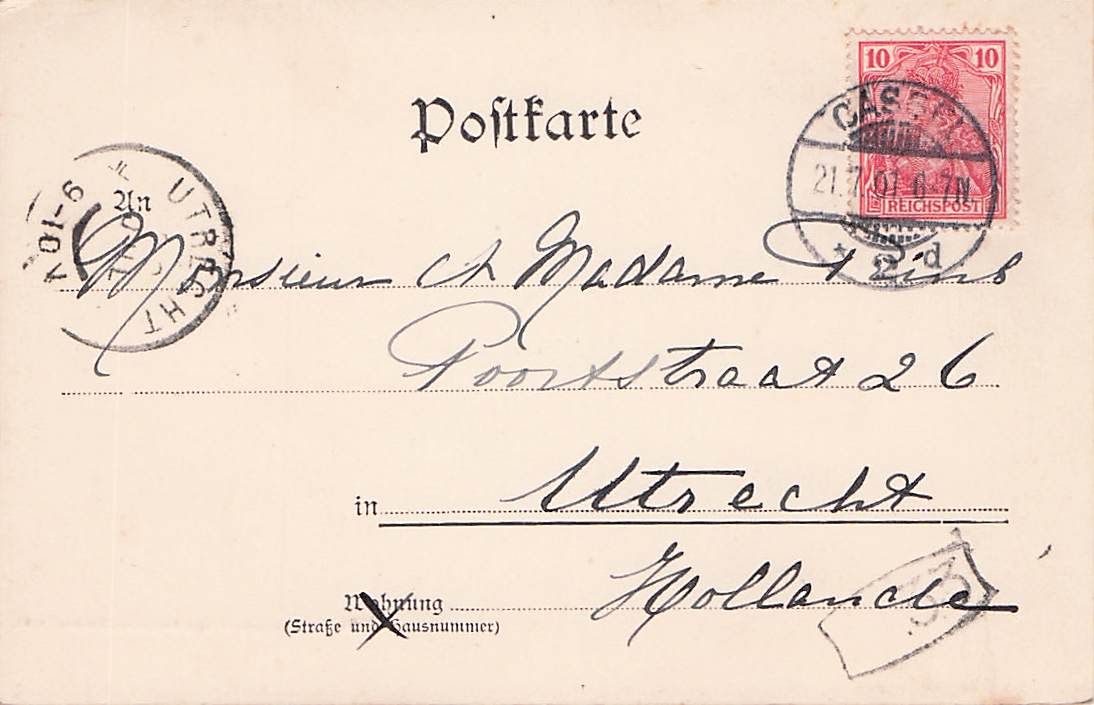 Postkarte
10 10
REICHSPOST
CASSEL
21.7.01 6-7N
* 2 d
UTRECHT
An
Monsieur et Madame
Poortstraat 26
in Utrecht
Hollande
Wohnung
(Straße und Hausnummer)
33